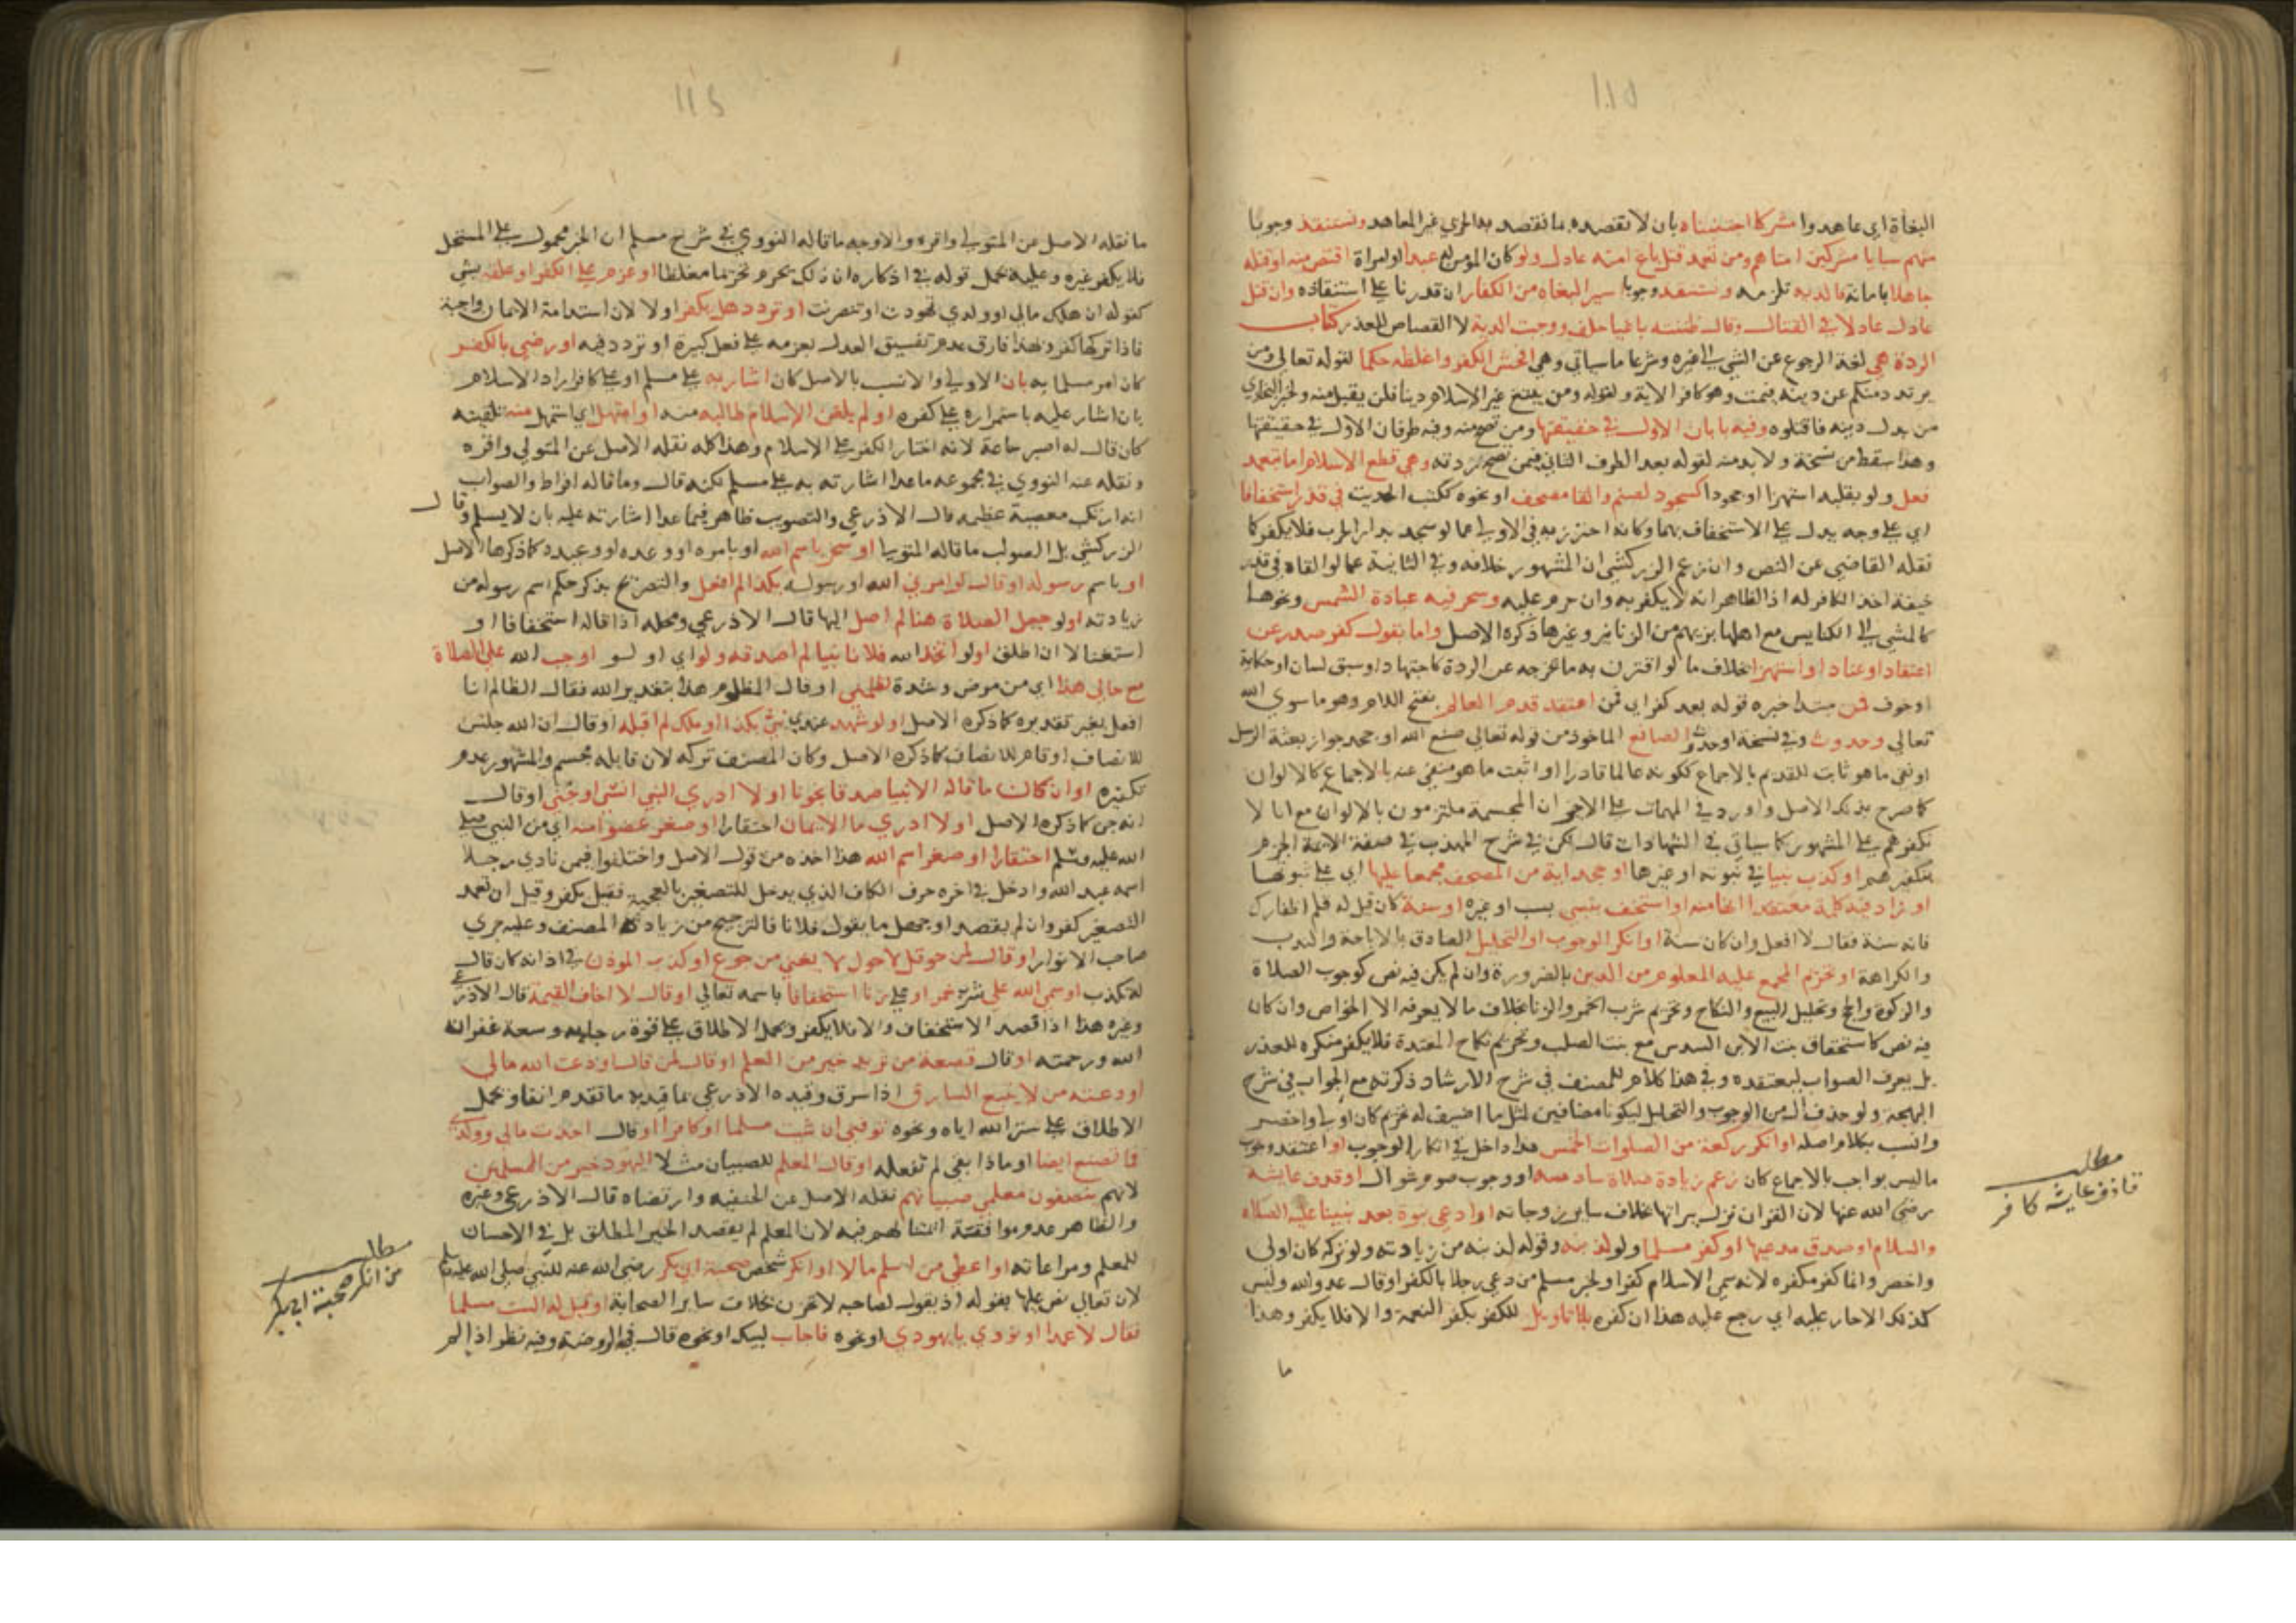 البغاة اي عاهدوا مشركا اجتنبناه بان لا نقصده بما نقصد به الحربي غير المعاهد ونستنقذ وجوبا
منهم سبايا مشركين امناهم ومن تعمد قتل باغ امنه عادل ولو كان المؤمن له عبدا او امراة اقتص منه او قتله
جاهلا بامانه فالدية تلزمه ونستنقذ وجوبا سير البغاه من الكفار ان قدرنا على استنقاذه وان قتل
عادل عادلا في القتال وقال ظننته باغيا حلف ووجبت الدية لا القصاص للعذر كتاب
الردة هي لغة الرجوع عن الشي الى غيره وشرعا ما سياتي وهي افحش الكفر واغلظه حكما لقوله تعالى ومن
يرتدد منكم عن دينه فيمت وهو كافر الاية ولقوله ومن يبتغ غير الاسلام دينا فلن يقبل منه ولخبر البخاري
من بدل دينه فاقتلوه وفيه بابان الاول في حقيقتها ومن تصح منه وفيه طرفان الاول في حقيقتها
وهذا سقط من نسخة ولا بد منه لقوله بعد الطرف الثاني فيمن تصح ردته وهي قطع الاسلام اما بتعمد
فعل ولو بقلبه استهزا او جحودا كسجود لصنم والقا مصحف او نحوه ككتب الحديث في قذر استخفافا
اي على وجه يدل على الاستخفاف بهما وكانه احترز به في الاولى عما لو سجد بدار الحرب فلا يكفر كما
نقله القاضي عن النص وان زعم الزركشي ان المشهور خلافه وفي الثانية عما لو القاه في قذر
خيفة اخذ الكافر له اذ الظاهر انه لا يكفر به وان حرم عليه وسحر فيه عبادة الشمس ونحوها
كالمشي الى الكنايس مع اهلها بزيهم من الزنانير وغيرها ذكره الاصل واما بقول كفر صدر عن
اعتقاد او عناد او استهزا بخلاف ما لو اقترن به ما يخرجه عن الردة كاجتهاد او سبق لسان او حكاية
او خوف فمن مبتدا خبره قوله بعد كفر اي فمن اعتقد قدم العالم بفتح اللام وهو ما سوى الله
تعالى وحدوث وفي نسخة او حدوث الصانع الماخوذ من قوله تعالى صنع الله او جحد جواز بعثة الرسل
او نفى ما هو ثابت للقديم بالاجماع ككونه عالما قادرا او اثبت ما هو منفي عنه بالاجماع كالالوان
كما صرح بذلك الاصل واورد في المهمات على الاخير ان المجسمة ملتزمون بالالوان مع انا لا
نكفرهم على المشهور كما سياتي في الشهادات قال لكن في شرح المهذب في صفة الايمة الجزم
بتكفيرهم او كذب نبيا في نبوته او غيرها او جحد اية من المصحف مجمعا عليها اي على ثبوتها
او زاد فيه كلمة معتقدا انها منه او استخف بنبي بسب او غيره او سنة كان قيل له قلم اظفارك
فانه سنة فقال لا افعل وان كان سنة او انكر الوجوب او التحليل الصادق بالاباحة والندب
والكراهة او تحريم المجمع عليه المعلوم من الدين بالضرورة وان لم يكن فيه نص كوجوب الصلاة
والزكوة والحج وتحليل البيع والنكاح وتحريم شرب الخمر والزنا بخلاف ما لا يعرفه الا الخواص وان كان
فيه نص كاستحقاق بنت الابن السدس مع بنت الصلب وتحريم نكاح المعتدة فلا يكفر منكره للعذر
بل يعرف الصواب ليعتقده وفي هذا كلام للمصنف في شرح الارشاد ذكرته مع الجواب في شرح
البهجة ولو حذف ال من الوجوب والتحليل ليكونا مضافين لمثل ما اضيف له تحريم كان اولى واخصر
وانسب بكلام اصله او انكر ركعة من الصلوات الخمس هذا داخل في انكار الوجوب او اعتقد وجوب
ما ليس بواجب بالاجماع كان زعم زيادة صلاة سادسة او وجوب صوم شوال او قذف عايشة
رضي الله عنها لان القران نزل ببراتها بخلاف ساير زوجاته او ادعى نبوة بعد نبينا عليه الصلاه
والسلام او صدق مدعيها او كفر مسلما ولو لذنبه وقوله لذنبه من زيادته ولو تركه كان اولى
واخصر وانما كفر مكفره لانه سمى الاسلام كفرا ولخبر مسلم من دعى رجلا بالكفر او قال عدو الله وليس
كذلك الا حار عليه اي رجع عليه هذا ان كفره بلا تاويل للكفر بكفر النعمة والا فلا يكفر وهذا
ما
مطلب
قاذف عايشه كافر
ما نقله الاصل عن المتولي واقره والاوجه ما قاله النووي في شرح مسلم ان الخبر محمول على المستحل
فلا يكفر غيره وعليه يحمل قوله في اذكاره ان ذلك يحرم تحريما مغلظا او عزم على الكفر او علقه بشي
كقوله ان هلك مالي او ولدي تهودت او تنصرت او تردد هل يكفر او لا لان استدامة الايمان واجبة
فاذا تركها كفر وبهذا فارق عدم تفسيق العدل بعزمه على فعل كبيرة او تردد فيه او رضي بالكفر
كان امر مسلما به بان الاولى والانسب بالاصل كان اشار به على مسلم او على كافر اراد الاسلام
بان اشار عليه باستمراره على كفره او لم يلقن الاسلام طالبه منه او استمهل اي استمهل منه تلقينه
كان قال له اصبر ساعة لانه اختار الكفر على الاسلام وهذا كله نقله الاصل عن المتولي واقره
ونقله عنه النووي في مجموعه ما عدا اشارته به على مسلم لكنه قال وما قاله افراط والصواب
انه ارتكب معصية عظيمه قال الاذرعي والتصويب ظاهر فيما عدا اشارته عليه بان لا يسلم وقال
الزركشي بل الصواب ما قاله المتولي او سخر باسم الله او بامره او وعده او وعيده كما ذكرها الاصل
او باسم رسوله او قال لو امرني الله او رسوله بكذا لم افعل والتصريح بذكر حكم اسم رسوله من
زيادته او لو جعل الصلاة هنا لم اصل اليها قال الاذرعي ومحله اذا قاله استخفافا او
استغنا لا ان اطلق او لو اتخذ الله فلانا نبيا لم اصدقه ولو اي او لو اوجب الله علي الصلاة
مع حالي هذا اي من مرض وشدة لظلمني او قال المظلوم هذا بتقدير الله فقال الظالم انا
افعل بغير تقديره كما ذكره الاصل او لو شهد عندي نبي بكذا او ملك لم اقبله او قال ان الله جلس
للانصاف او قام للانصاف كما ذكره الاصل وكان المصنف تركه لان قايله مجسم والمشهور عدم
تكفيره او ان كان ما قاله الانبيا صدقا نجونا او لا ادري النبي انسي او جني او قال
انه جن كما ذكره الاصل او لا ادري ما الايمان احتقارا او صغر عضوا منه اي من النبي صلى
الله عليه وسلم احتقارا او صغر اسم الله هذا اخذه من قول الاصل واختلفوا فيمن نادى رجلا
اسمه عبد الله وادخل في اخره حرف الكاف الذي يدخل للتصغير بالعجمية فقيل يكفر وقيل ان تعمد
التصغير كفر وان لم يقصد او جهل ما يقول فلا فالترجيح من زيادة المصنف وعليه جرى
صاحب الانوار او قال لمن حوقل لا حول لا يغني من جوع او كذب الموذن في اذانه كان قال
له تكذب او سمى الله على شرب خمر او على زنا استخفافا باسمه تعالى او قال لا اخاف القيمة قال الاذرعي
وغيره هذا اذا قصد الاستخفاف والا فلا يكفر ويحمل الاطلاق على قوة رجايه وسعة غفرانه
الله ورحمته او قال قصعة من ثريد خير من العلم او قال لمن قال اودعت الله مالي
اودعته من لا يتبع السارق اذا سرق وقيده الاذرعي بما قيد به ما تقدم انفا ويحمل
الاطلاق على ستر الله اياه ونحوه توفني ان شيت مسلما او كافرا او قال اخذت مالي وولدي
فما تصنع ايضا او ماذا بقي لم تفعله او قال المعلم للصبيان مثلا اليهود خير من المسلمين
لانهم ينصفون معلمي صبيانهم نقله الاصل عن الحنفيه وارتضاه قال الاذرعي وغيره
والظاهر عدم موافقتة ايمتنا لهم فيه لان المعلم لم يقصد الخير المطلق بل في الاحسان
للمعلم ومراعاته او اعطى من اسلم مالا او انكر شخص صحبة ابي بكر رضي الله عنه للنبي صلى الله عليه وسلم
لان تعالى نص عليها بقوله اذ يقول لصاحبه لا تحزن بخلاف ساير الصحابة او قيل له الست مسلما
فقال لا عمدا او نودي يا يهودي او نحوه فاجاب لبيك او نحوه قال في الروضة وفيه نظر اذا لم
مطلب
من انكر صحبة ابي بكر